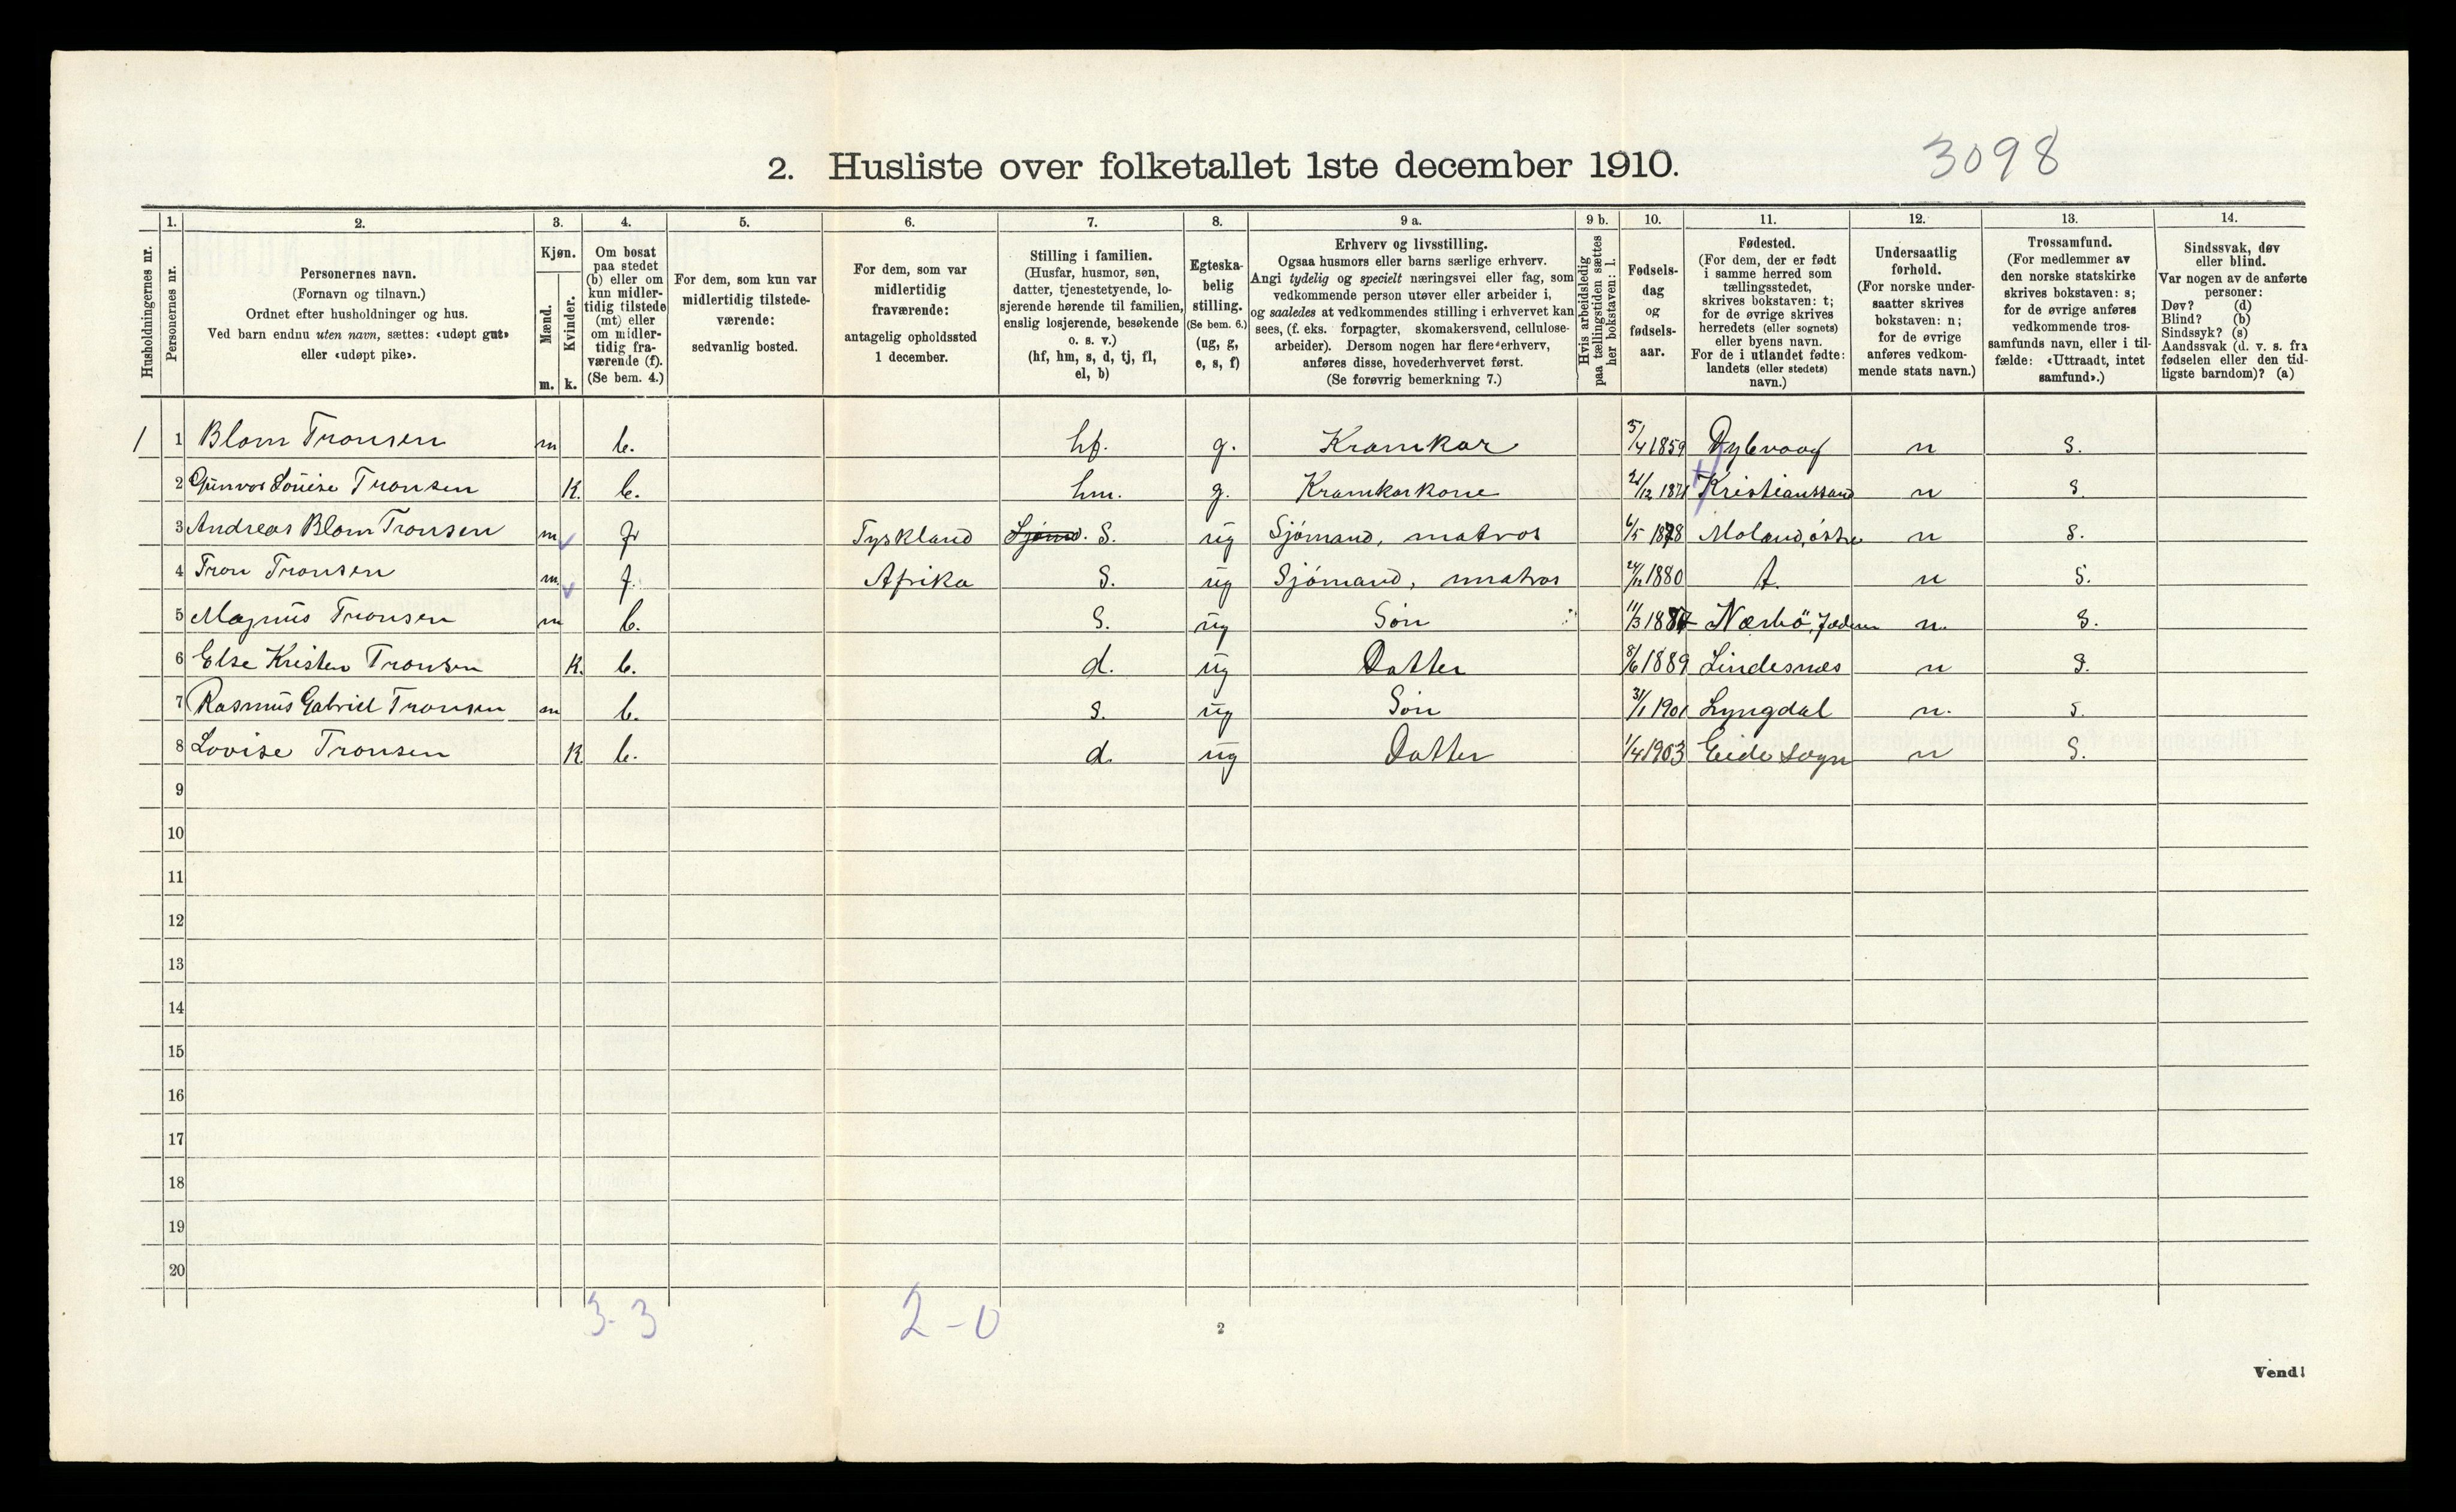 3098
2. Husliste over folketallet 1ste december 1910.
Husholdningernes nr.
1.
Personernes nr.
2.
Personernes navn.
(Fornavn og tilnavn.)
Ordnet efter husholdninger og hus.
Ved barn endnu uten navn, sættes: «udøpt gut»
eller «udøpt pike».
3.
Kjøn.
Mænd.
Kvinder.
m. k.
4.
Om bosat
paa stedet
(b) eller om
kun midler-
tidig tilstede
(mt) eller
om midler-
tidig fra-
værende (f).
(Se bem. 4.)
5.
For dem, som kun var
midlertidig tilstede-
værende:
sedvanlig bosted.
6.
For dem, som var
midlertidig
fraværende:
antagelig opholdssted
1 december.
7.
Stilling i familien.
(Husfar, husmor, søn,
datter, tjenestetyende, lo-
sjerende hørende til familien,
enslig losjerende, besøkende
o. s. v.)
(hf, hm, s, d, tj, fl,
el, b)
8.
Egteska-
belig
stilling.
(Se bem. 6.)
(ug, g,
e, s, f)
9 a.
Erhverv og livsstilling.
Ogsaa husmors eller barns særlige erhverv.
Angi tydelig og specielt næringsvei eller fag, som
vedkommende person utøver eller arbeider i,
og saaledes at vedkommendes stilling i erhvervet kan
sees, (f. eks. forpagter, skomakersvend, cellulose-
arbeider). Dersom nogen har flere erhverv,
anføres disse, hovederhvervet først.
(Se forøvrig bemerkning 7.)
9 b.
Hvis arbeidsledig
paa tællingstiden sættes
her bokstaven: l.
10.
Fødsels-
dag
og
fødsels-
aar.
11.
Fødested.
(For dem, der er født
i samme herred som
tællingsstedet,
skrives bokstaven: t;
for de øvrige skrives
herredets (eller sognets)
eller byens navn.
For de i utlandet fødte:
landets (eller stedets)
navn.)
12.
Undersaatlig
forhold.
(For norske under-
saatter skrives
bokstaven: n;
for de øvrige
anføres vedkom-
mende stats navn.)
13.
Trossamfund.
(For medlemmer av
den norske statskirke
skrives bokstaven: s;
for de øvrige anføres
vedkommende tros-
samfunds navn, eller i til-
fælde: «Uttraadt, intet
samfund».)
14.
Sindssvak, døv
eller blind.
Var nogen av de anførte
personer:
Døv? (d)
Blind? (b)
Sindssyk? (s)
Aandssvak (d. v. s. fra
fødselen eller den tid-
ligste barndom)? (a)
1 1 Blom Tronsen m b. hf. g. Kramkar 5/4 1859 Dybvaag n s.
2 Gunvor Louise Tronsen K. b. hm. g. Kramkarkone Kristianssand n s
3 Andreas Blom Tronsen m f Tyskland Sjømd. S. ug Sjömand, matros 6/5 1878 Moland, östre n s.
4 Tron Tronsen m. f. Afrika S. ug Sjömand, matros 24/12 1880 t. n s.
5 Magnus Tronsen m b. S. ug Sön 11/3 1887 Nærbö, Jæderen n. s.
6 Else Kristen Tronsen K. b. d. ug Datter 8/6 1889 Lindesnæs n s.
7 Rasmus Gabriel Tronsen m b. s. ug Sön 31/1 1901 Lyngdal n. s.
8 Lovise Tronsen K b. d. ug Datter 1/4 1903 Eide sogn n s.
9
10
11
12
13
14
15
16
17
18
19
20
3-3 2-0
2
Vend!